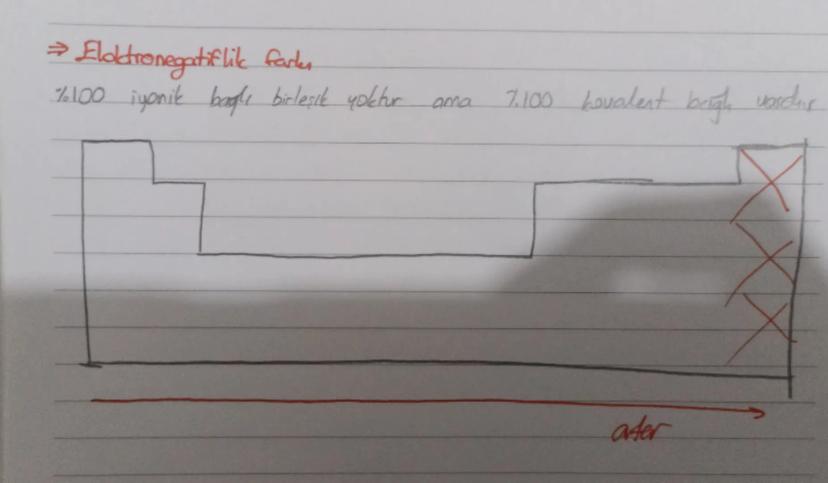 ⇒ Elektronegatiflik farkı
%100 iyonik bağlı birleşik yoktur ama %100 kovalent bağlı vardır
artar